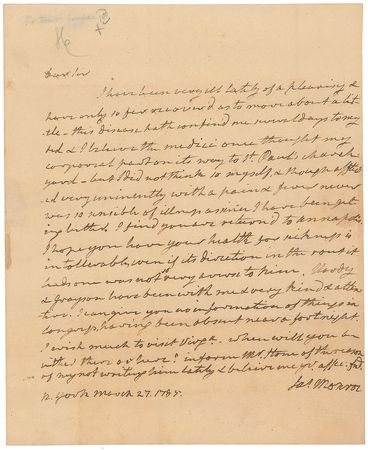 Dear Sir
I have been very ill lately of a pleurisy &
have only so far recovered as to move about a lit-
tle - this disease hath confin'd me several days to my
bed & I believe the medici once thought my
corporeal part on its way to St. Paul's church
yard - but I did not think so myself, & though afflict-
ed very eminently with a pain & fever never
was so sensible of illness as since I have been get-
ing better. I find you are return'd to Annapolis
I hope you have your health for sickness is
intollerable, even if its direction in the rout it
leads one was not very averse to him.
& Grayson have been with me & very kind & atten-
tive. I can give you no information of things in
Congress, having been absent near a fortnight.
I wish much to visit Virga. when will you be
either there or here? inform Mr. Hone of the reason
of my not writing him lately & believe me yr. affec. frd.
Jas. Monroe
N. York March 27. 1785.